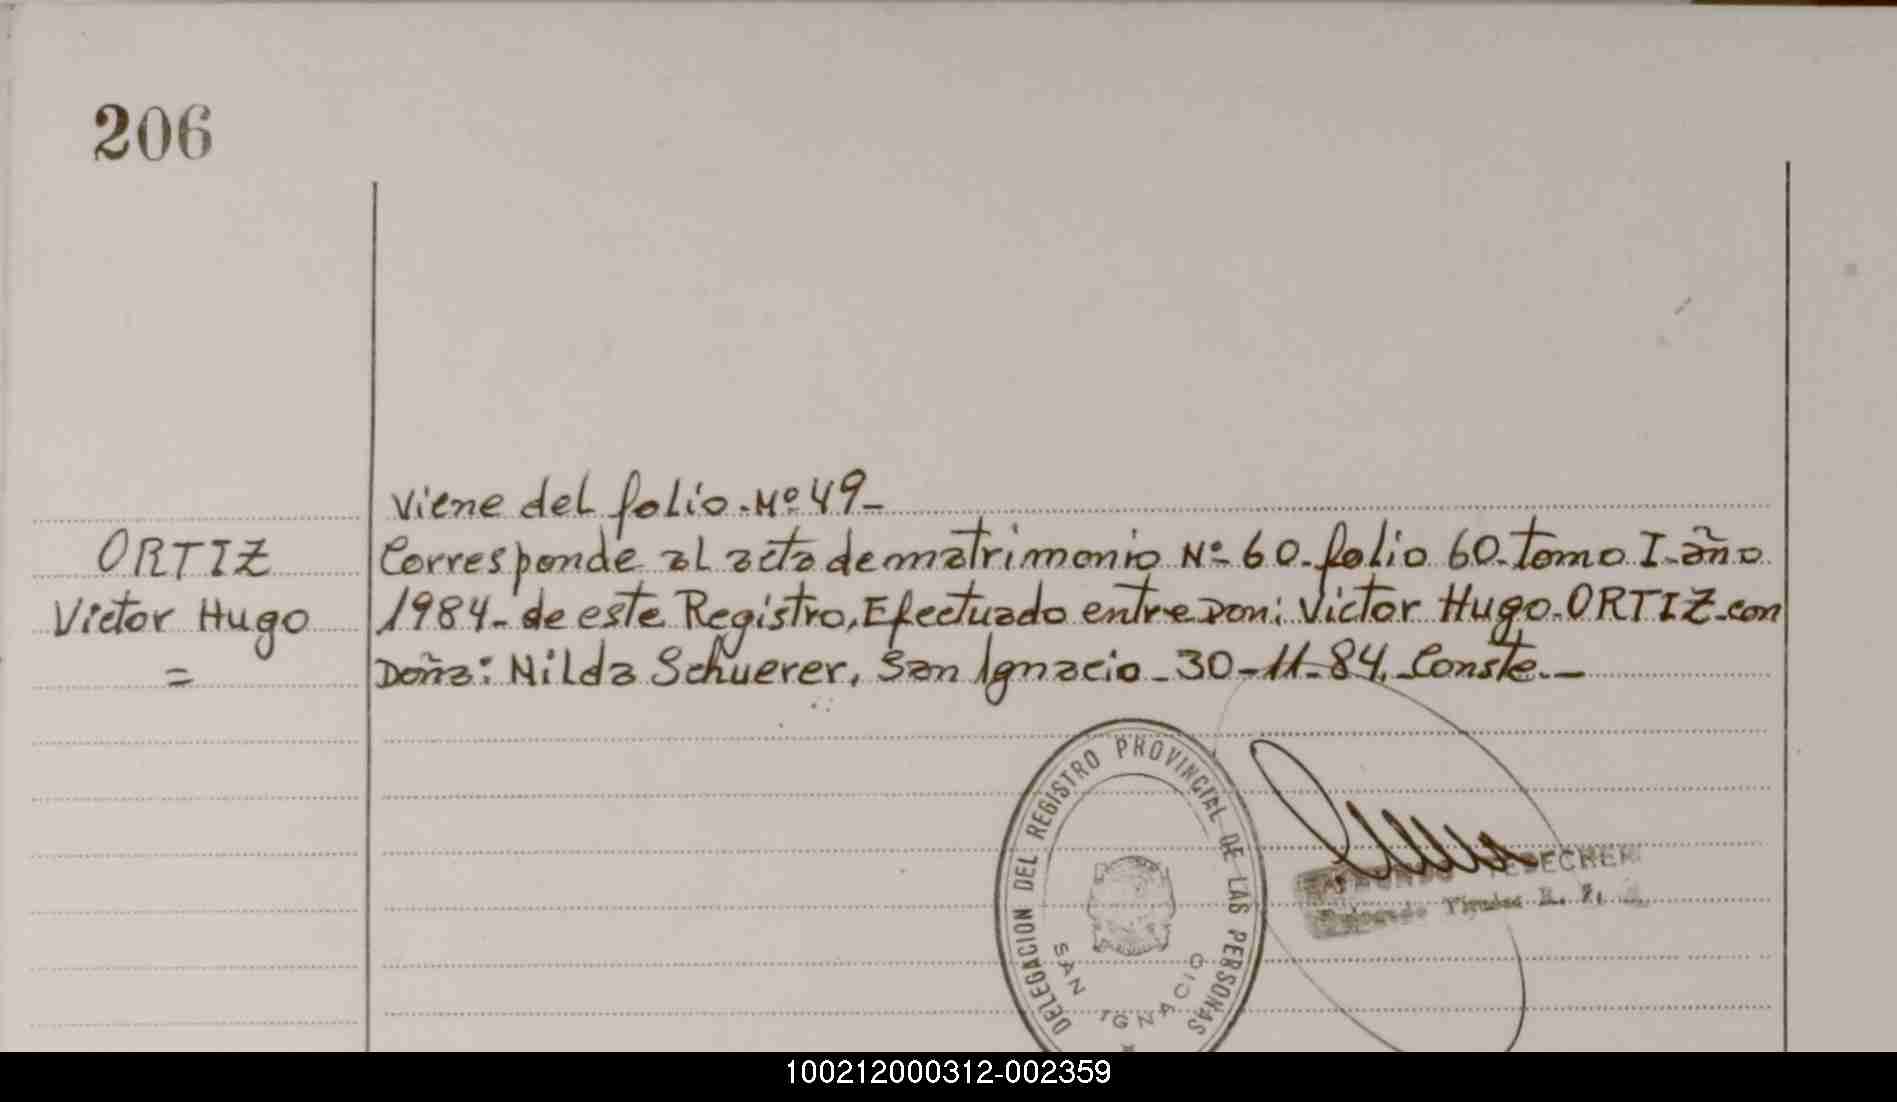 206
Viene del folio. Nº 49_
ORTIZ
Victor Hugo
=
Corresponde al acta de matrimonio Nº 60. folio 60. tomo I. año
1984_ de este Registro, Efectuado entre Don: Victor Hugo. ORTIZ. con
Doña: Nilda Schuerer, San Ignacio _ 30-11-84. Conste._
DELEGACION DEL REGISTRO PROVINCIAL DE LAS PERSONAS
SAN IGNACIO
Titular R. P.
100212000312-002359